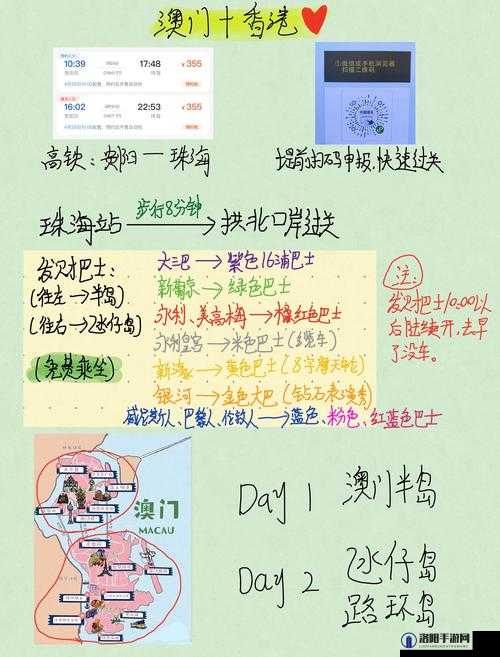 澳门+香港
10:39 17:48 ¥355
16:02 22:53 ¥355
①微信或手机浏览器
扫描二维码
高铁：安阳—珠海
提前扫码申报，快速过关
珠海站 步行8分钟 → 拱北口岸过关
发财巴士：
(往左→半岛)
(往右→氹仔岛)
(免费乘坐)
大三巴→紫色16浦巴士
新葡京→绿色巴士
永利、美高梅→橡红色巴士
永利皇宫→米色巴士(缆车)
新濠→黄色巴士(8字摩天轮)
银河→金色大巴(钻石表演秀)
威尼斯人、巴黎人、伦敦人→蓝色、粉色、红蓝色巴士
注：
发财巴士10:00以
后陆续开，去早
了没车。
澳门
MACAU
Day 1 澳门半岛
Day 2 氹仔岛
路环岛
洛阳手游网